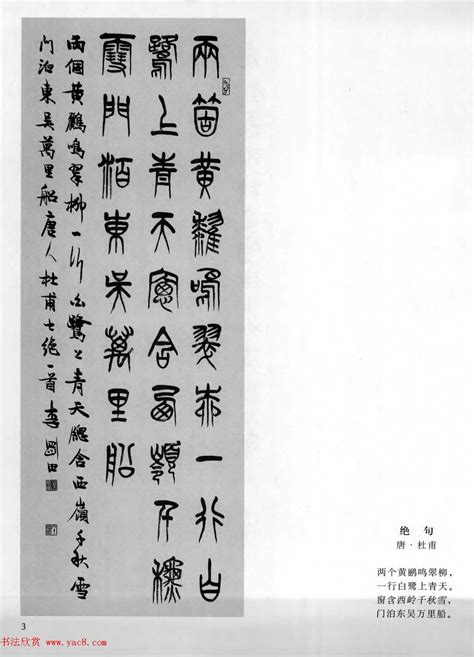 兩箇黃鸝鳴翠柳一行白
鷺上青天窗含西嶺千秋
雪門泊東吳萬里船
兩個黃鸝鳴翠柳一行白鷺上青天窗含西嶺千秋雪
門泊東吳萬里船唐人杜甫七绝一首李剛田
绝句
唐·杜甫
两个黄鹂鸣翠柳，
一行白鹭上青天。
窗含西岭千秋雪，
门泊东吴万里船。
3
书法欣赏 www.yac8.com